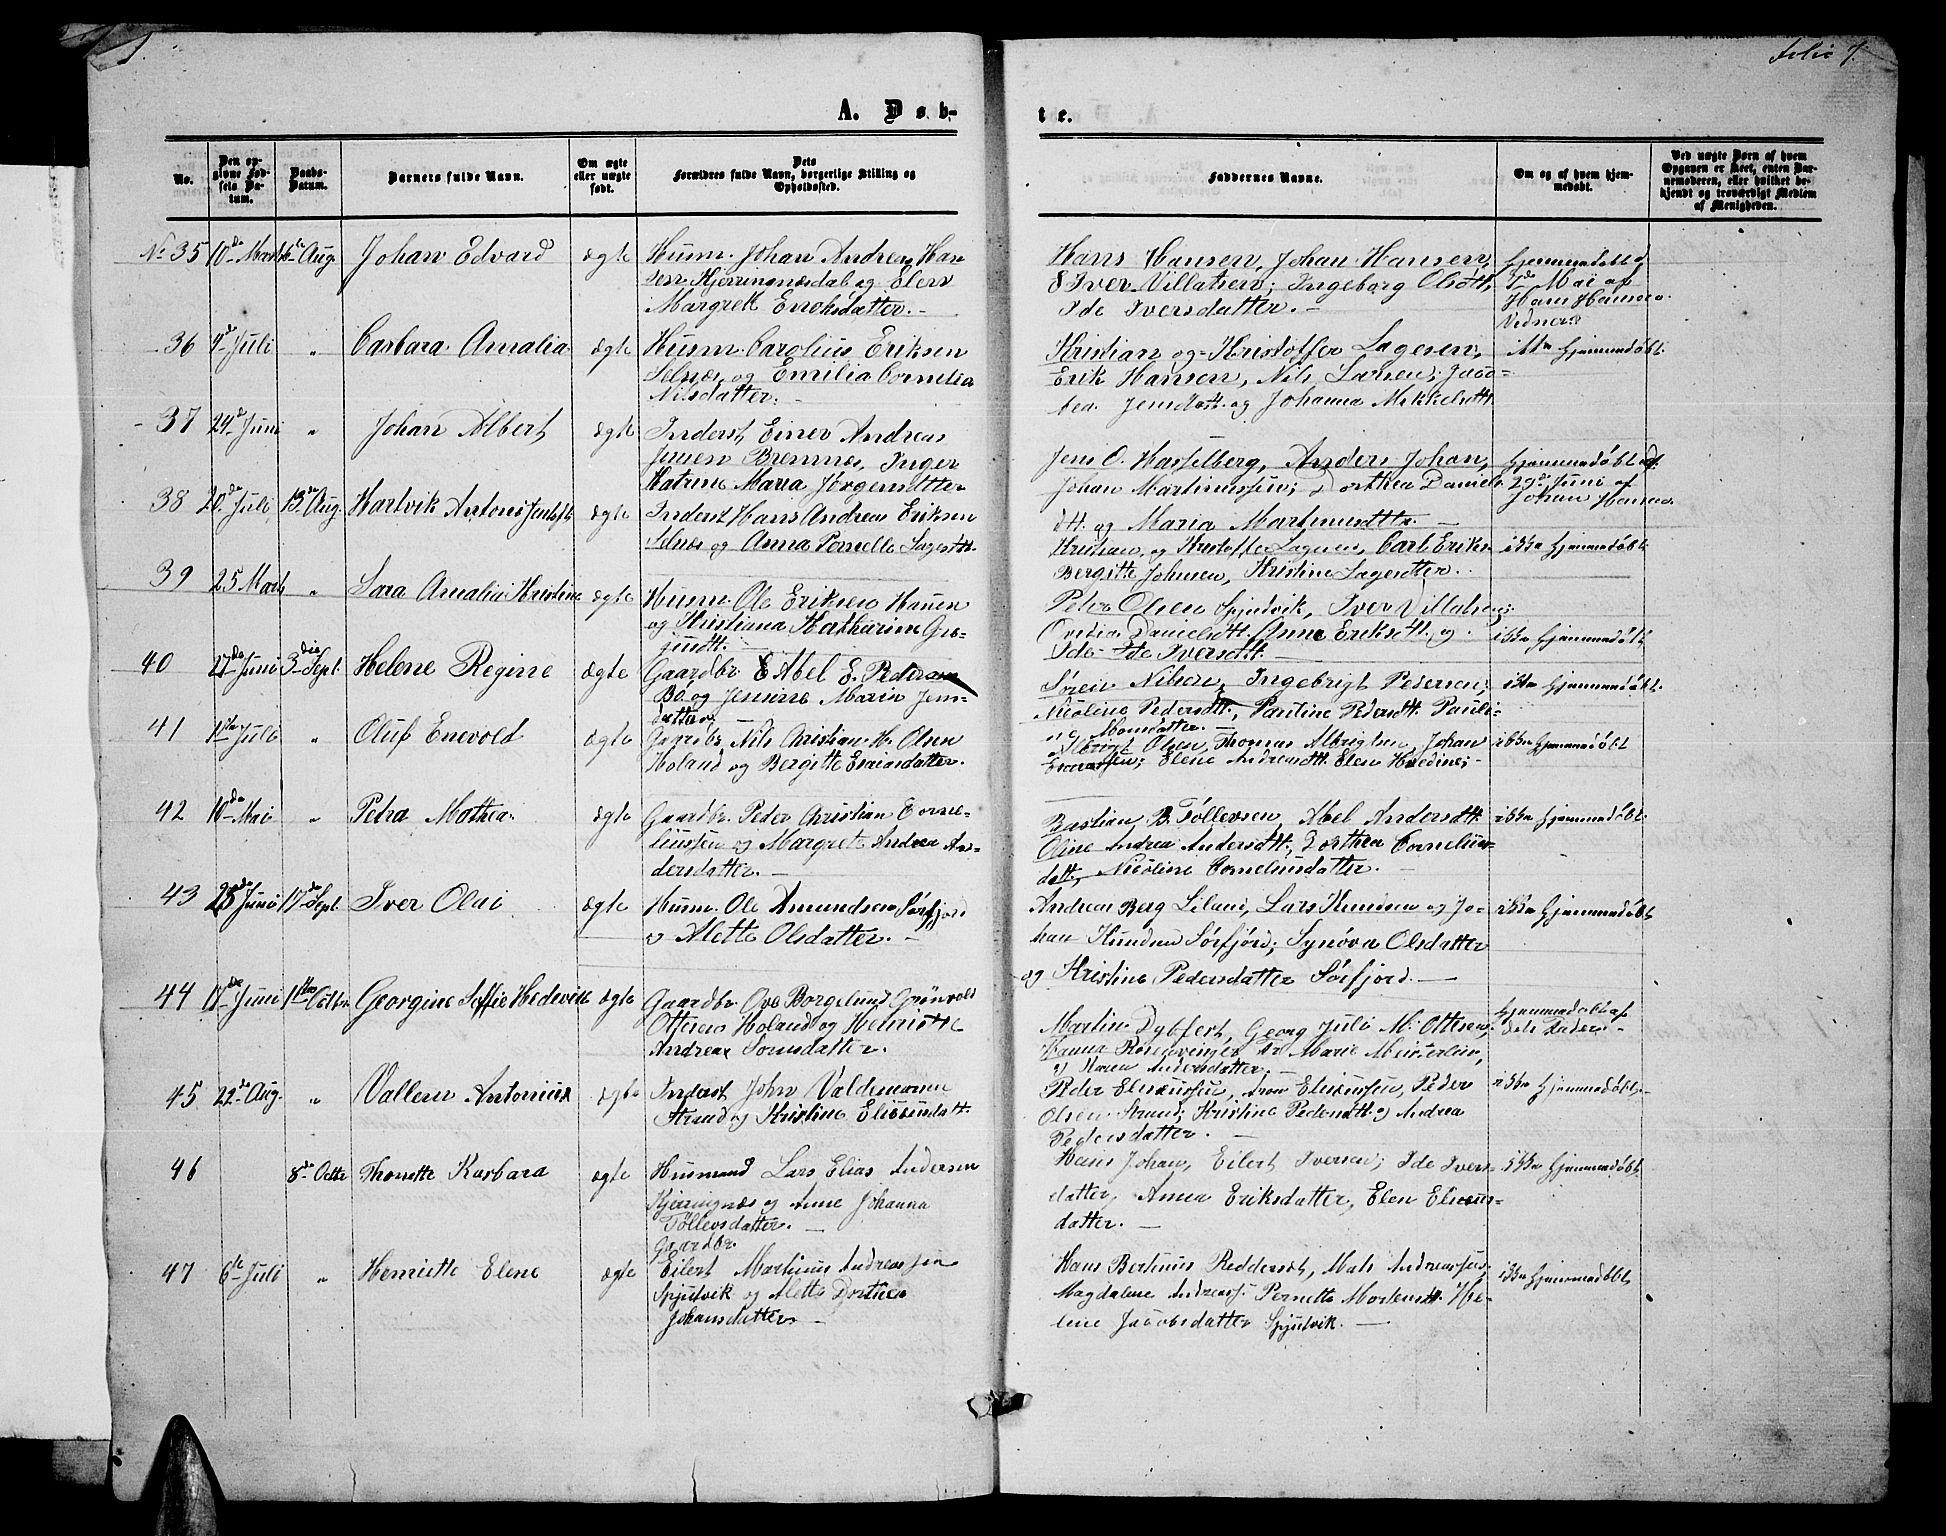 folio 7.
A. Døb-
te.
No.
Den op-
givne Fød-
sels Da-
tum.
Daabs-
Datum.
Barnets fulde Navn.
Om ægte
eller uægte
født.
Dets
Forældres fulde Navn, borgerlige Stilling og
Opholdssted.
Faddernes Navne.
Om og af hvem hjem-
medøbt.
Ved uægte Børn af hvem
Opgaven er skeet, enten Bar-
nemoderen, eller hvilket be-
kjendt og troværdigt Medlem
af Menigheden.
No 35 10de Marts Aug. Johan Edvard ægte
Husm. Johan Andreas Han
sen Kjerringnæsdal og Elen
Margrett Enoksdatter.
Hans Hansen, Johan Hansen,
Iver Villatsen; Ingeborg Olsdtt,
Ide Iversdatter.
hjemmedøbt d
Mai af
Hans Hansen
36 Juli " Barbara Amalia ægte
Husm. Carolius Eriksen
Selnæs og Emilia Cornelia
Nilsdatter.
Kristian og Kristoffer Lagesen,
Erik Hansen, Nils Larsen; Jaco-
bea Jensdatt. og Johanna Mikkelsdtt.
ikke hjemmedøbt.
37 24de Juni " Johan Albert ægte
Inderst Einer Andreas
Jensen Bremnes, Inger
Katrine Maria Jörgensdtter
Jens O. Hasselberg, Anders Johan,
Johan Martinussen; Dorthea Daniels
dtt. og Maria Martinusdtter.
hjemmedøbt d.
29de Juni af
Johan Hansen
38 20de Juli 13de Aug. Hartvik Antoni Jentoft ægte
Inderst Hans Andreas Eriksen
Selnæs og Anna Pernella Lagesdtt.
Kristian og Kristoffer Lagesen, Carl Eriks.
Bergitte Johnsen, Kristine Lagesdtter.
ikke hjemmedøbt.
39 25 Marts " Sara Amalia Kristine ægte
Husm. Ole Eriksen Hauen
og Kristiana Katharina Gre-
jusdtt.
Peter Olsen Spjutvik, Iver Villatsen;
Ovedia Danielsdtt. Anne Eriksdtt. og
Ide Ide Iversdtt.
ikke hjemmedøbt
40 27de Juni 3die Sept. Helene Regine ægte
Gaardbr. E Abel E. Pedersen
Bö og Jensine Marin Jens-
datter
Sören Nilsen, Ingebrigt Pedersen;
Nicoline Pedersdtt, Pauline Pedersdtt. Pauli-
ne Monsdatter.
ikke hjemmedøbt.
41 11te Juli " Oluf Enevold ægte
Gaardbr. Nils Christian H. Olsen
Holand og Bergitte Esaiasdatter.
Albrigt Olsen, Thomas Albrigtsen, Johan
Esaiassen; Elene Andreasdtt. Elen Hædine;
ikke hjemmedøbt
42 10de Mai " Petra Mathea ægte
Gaardbr. Peder Christian Corne-
liussen og Margret Andrea An-
dersdatter.
Bastian B. Töllevsen, Abel Andersdtt.
Oline Andrea Andersdtt, Dorthea Cornelius-
datt, Nicoline Corneliusdatter.
ikke hjemmedøbt.
43 28de Juni 17de Sept. Iver Olai ægte
Husm. Ole Amundsen Sörfjord
og Alette Olsdatter.
Andreas Berg Liland, Lars Knudsen og Jo-
han Knudsen Sörfjord; Synöva Olsdatter
og Kristine Pedersdatter Sörfjord.
ikke hjemmedøbt
44 18de Juni 1ste Octbr. Georgine Soffie Hedevik ægte
Gaardbr. Ove Borgelund Grönvold
Ottesen Holand og Henriette
Andrea Tomsdatter.
Martin Dybfert, Georg Juli M. Ottesen,
Hanna Rosenvinge, Marie Meisterlin,
og Maren Andersdatter.
hjemmedøbt af
dets Fader
45 22de Aug. " Vallem Antonius ægte
Inderst John Valdemarsen
Strand og Kristine Eliseusdatt.
Peder Eliseussen, Aron Eliseussen, Peder
Olsen Strand; Kristine Pedersdtt. og Andrea
Pedersdatter.
ikke hjemmedøbt.
46 8de Octbr Thonette Karbara ægte
Husmand Lars Elias Andersen
Kjerringnæs og Anne Johanna
Töllevsdatter.
Hans Johan, Eilert Iversen; Ide Ivers-
datter, Anna Eriksdatter, Elen Eliseus-
datter.
ikke hjemmedøbt.
47 6te Juli " Henriette Elene ægte
Gaardbr.
Eilert Martinus Andreassen
Spjutvik og Alette Dorthea
Johansdatter
Hans Bertinus Reddersdt, Mats Andreassen,
Magdalene Andreas. Pernette Mortensdtt. He-
lene Jacobsdatter Spjutvik.
ikke hjemmedøbt